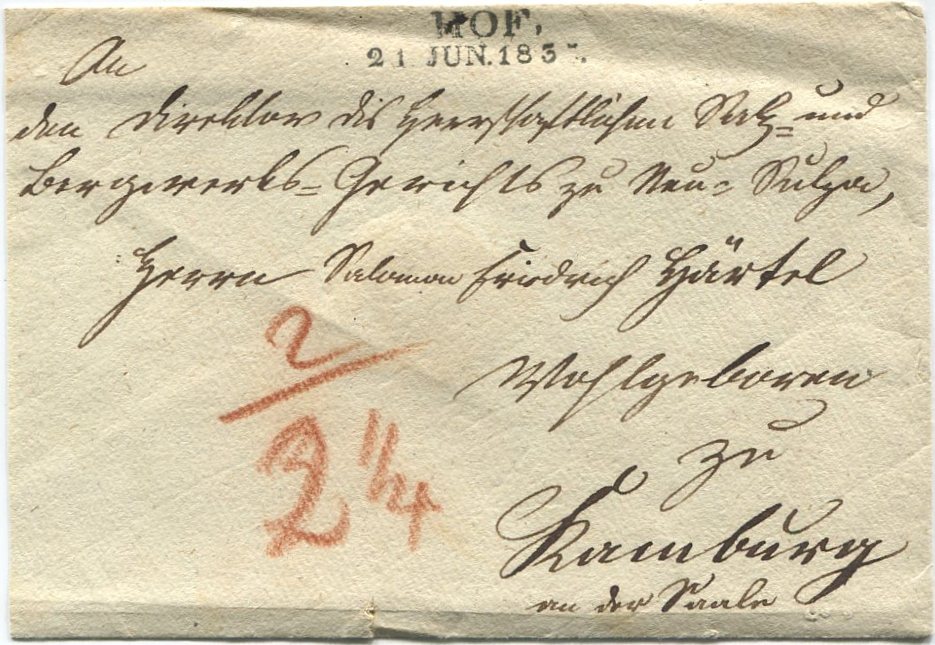 HOF.
21 JUN.183
An
den Direktor des Herrschaftlichen Salz= und
Bergwerks=Gerichts zu Neu=Sulza,
Herrn Salomon Friedrich Härtel
Wohlgeboren
zu
Kamburg
an der Saale
2
2 1/4